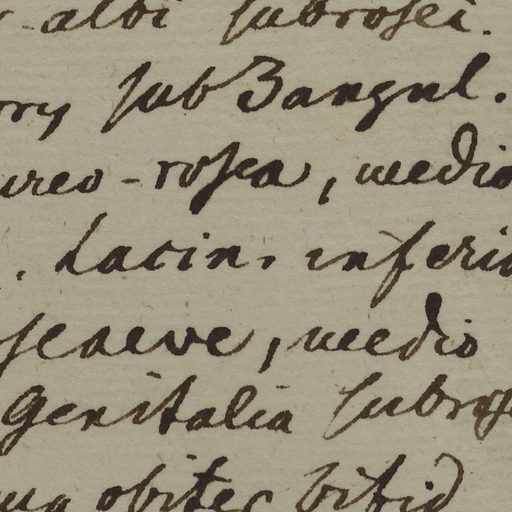 albi subrosei.
sub3angul.
ureo-rosea, medio
. Lacin. inferio
scaeve, medio
Genitalia subros
obiter bifid